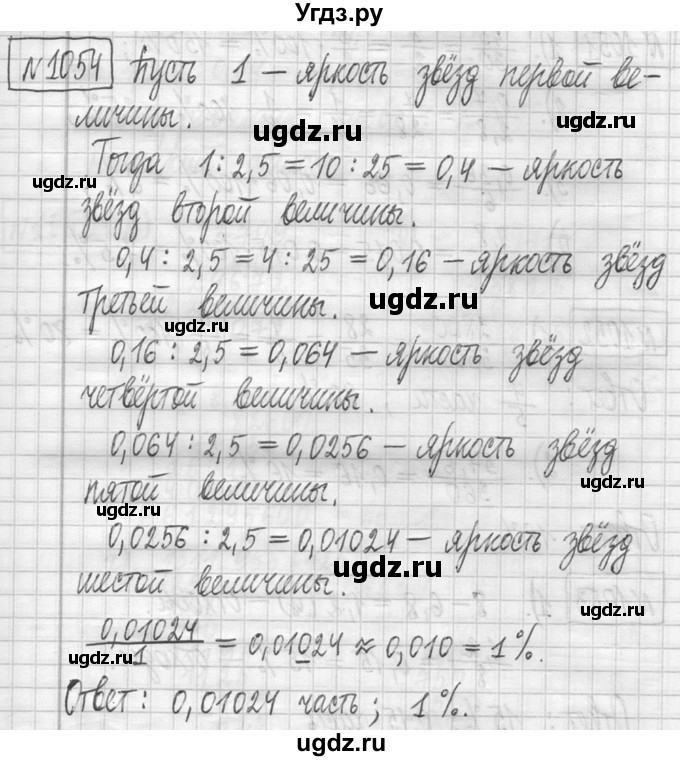 Угдз.ру
№1054 Пусть 1 – яркость звёзд первой ве-
личины.
ugdz.ru ugdz.ru
Тогда 1 : 2,5 = 10 : 25 = 0,4 – яркость
ugdz.ru
звёзд второй величины.
0,4 : 2,5 = 4 : 25 = 0,16 – яркость звёзд
третьей величины.
ugdz.ru
ugdz.ru
0,16 : 2,5 = 0,064 – яркость звёзд
четвёртой величины.
ugdz.ru
0,064 : 2,5 = 0,0256 – яркость звёзд
пятой величины.
ugdz.ru
ugdz.ru
0,0256 : 2,5 = 0,01024 – яркость звёзд
ugdz.ru
шестой величины.
0,01024/1 = 0,01024 ≈ 0,010 = 1%.
ugdz.ru ugdz.ru
Ответ: 0,01024 часть; 1%.
ugdz.ru
ugdz.ru